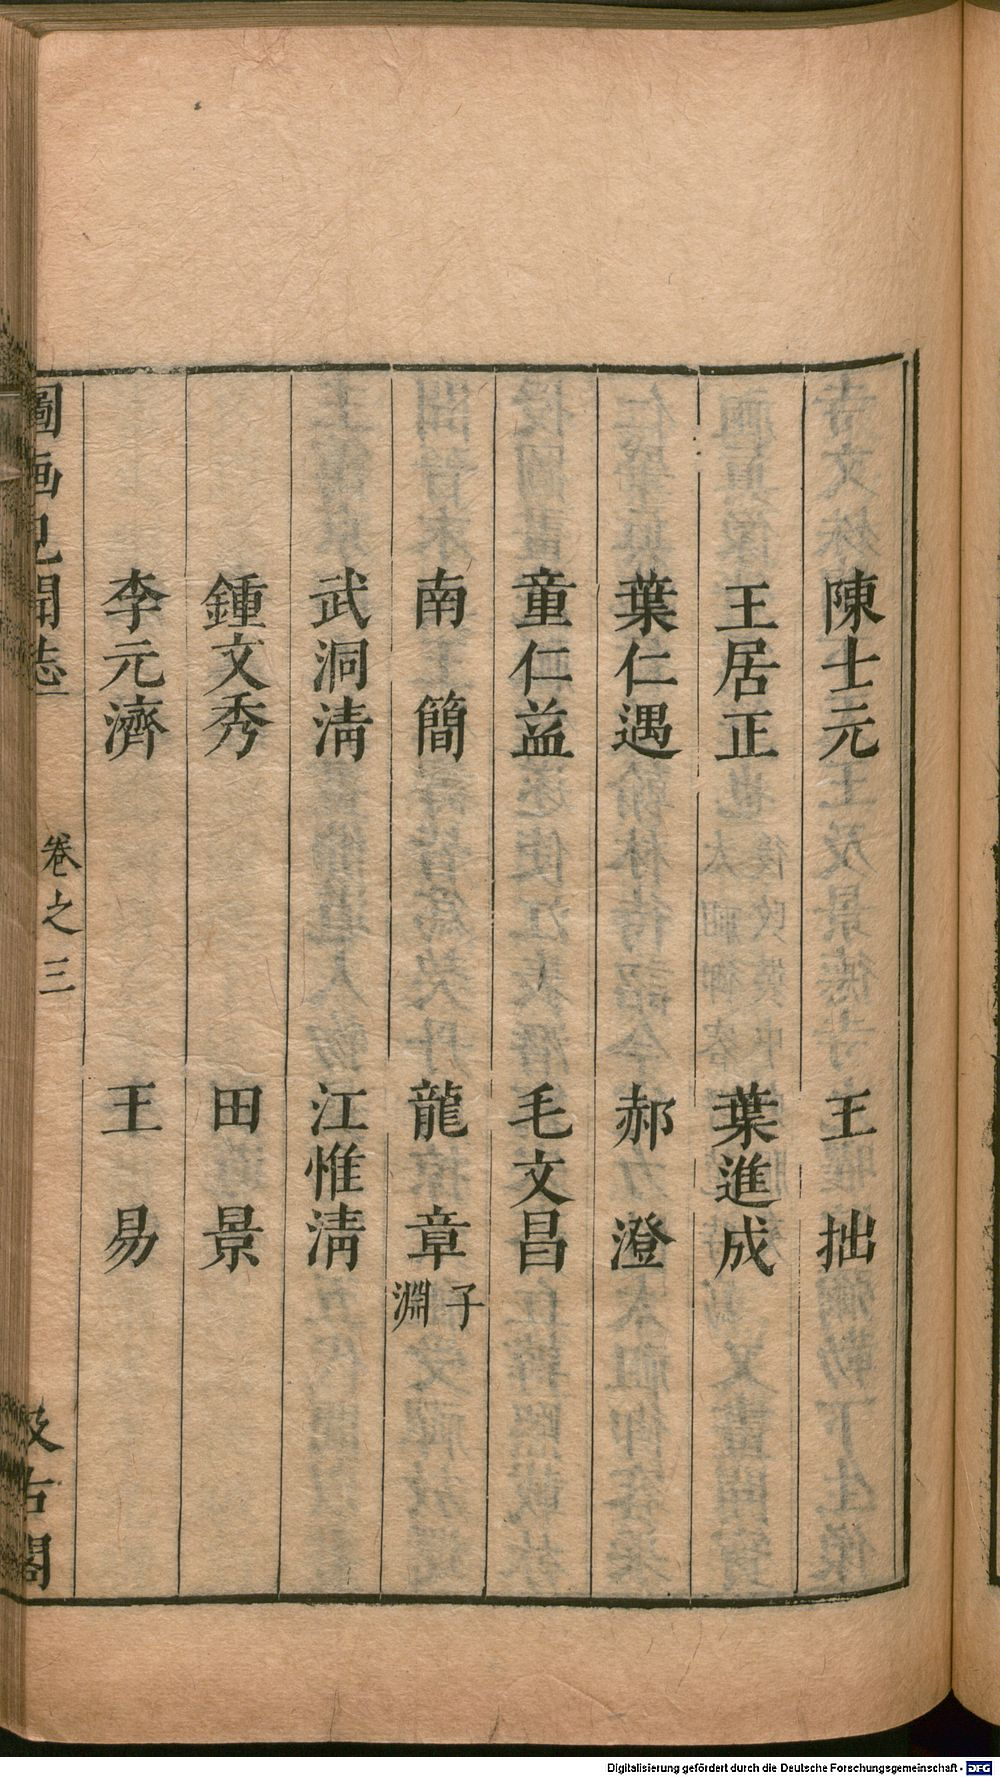 陳士元　王拙
王居正　葉進成
葉仁遇　郝澄
童仁益　毛文昌
南簡　龍章子淵
武洞清　江惟清
鍾文秀　田景
李元濟　王易
圖画見聞志　卷之三　汲古閣
Digitalisierung gefördert durch die Deutsche Forschungsgemeinschaft - DFG